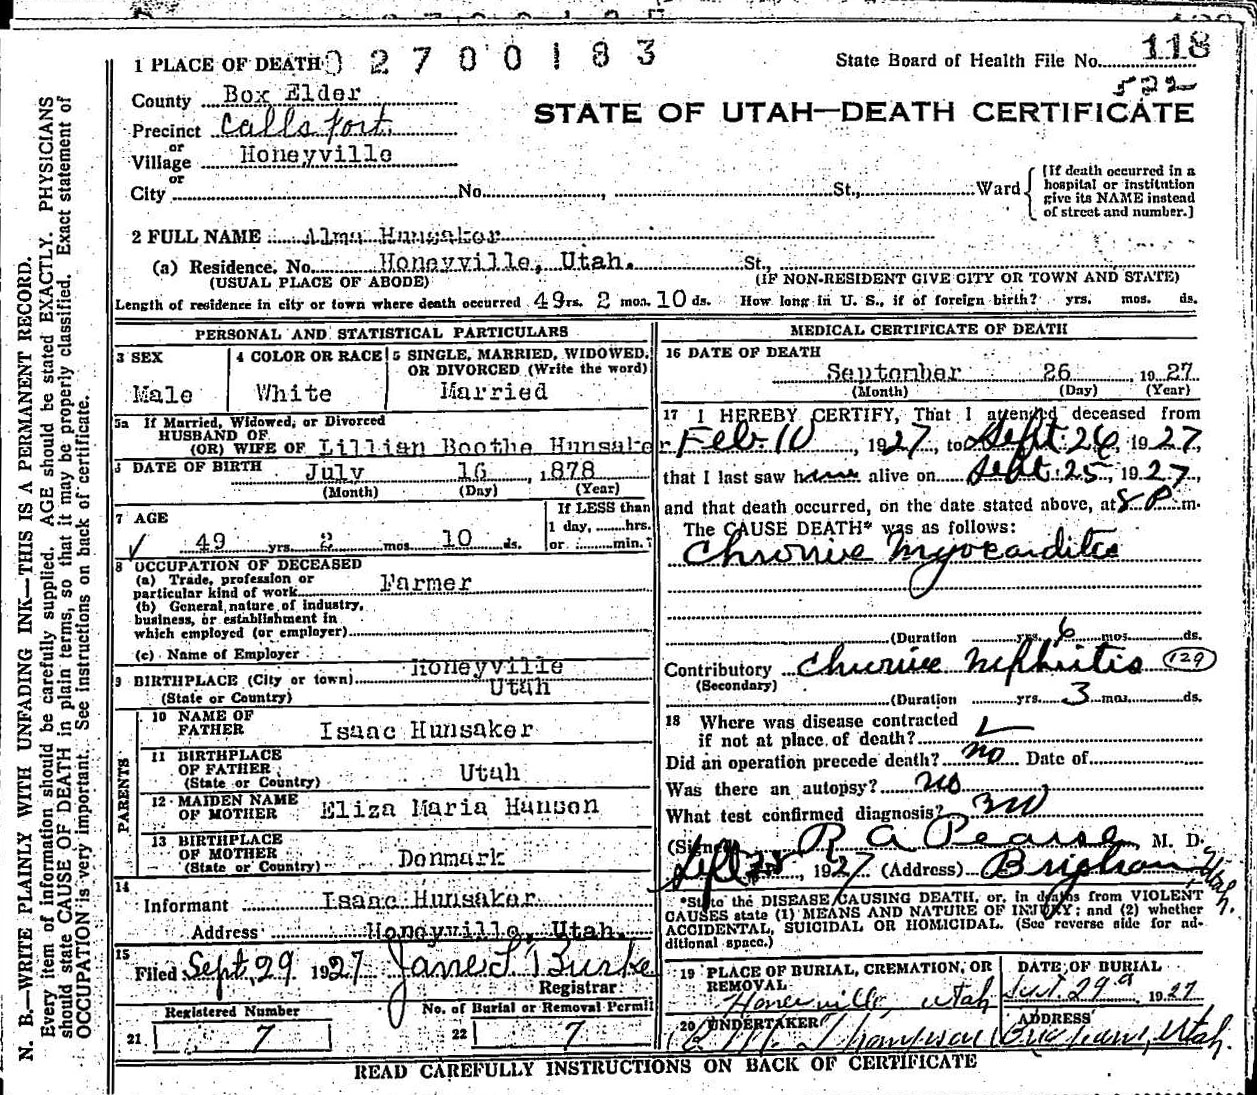 1 PLACE OF DEATH 0 2 7 0 0 1 8 3
State Board of Health File No. 118
522
County Box Elder
STATE OF UTAH—DEATH CERTIFICATE
Precinct Calls Fort
or
Village Honeyville
or
City No. , St., Ward
[If death occurred in a
hospital or institution
give its NAME instead
of street and number.]
2 FULL NAME Alma Hunsaker
(a) Residence. No. Honeyville, Utah. St.,
(USUAL PLACE OF ABODE) (IF NON-RESIDENT GIVE CITY OR TOWN AND STATE)
Length of residence in city or town where death occurred 49 yrs. 2 mos. 10 ds. How long in U. S., if of foreign birth? yrs. mos. ds.
PERSONAL AND STATISTICAL PARTICULARS
3 SEX
Male
4 COLOR OR RACE
White
5 SINGLE, MARRIED, WIDOWED,
OR DIVORCED (Write the word)
Married
5a If Married, Widowed, or Divorced
HUSBAND OF
(OR) WIFE OF Lillian Boothe Hunsaker
6 DATE OF BIRTH July 16, 1878
(Month) (Day) (Year)
7 AGE
49 yrs. 2 mos. 10 ds.
If LESS than
1 day, hrs.
or min.?
8 OCCUPATION OF DECEASED
(a) Trade, profession or
particular kind of work Farmer
(b) General nature of industry,
business, or establishment in
which employed (or employer)
(c) Name of Employer
9 BIRTHPLACE (City or town) Honeyville
(State or Country) Utah
PARENTS
10 NAME OF
FATHER Isaac Hunsaker
11 BIRTHPLACE
OF FATHER Utah
(State or Country)
12 MAIDEN NAME
OF MOTHER Eliza Maria Hanson
13 BIRTHPLACE
OF MOTHER Denmark
(State or Country)
14
Informant Isaac Hunsaker
Address Honeyville, Utah.
15
Filed Sept. 29 1927 Registrar
Registered Number
21 7
No. of Burial or Removal Permit
22 7
MEDICAL CERTIFICATE OF DEATH
16 DATE OF DEATH
September 26, 1927
(Month) (Day) (Year)
17 I HEREBY CERTIFY, That I attended deceased from
Feb. 10, 1927, to Sept. 26, 1927,
that I last saw him alive on Sept. 25, 1927,
and that death occurred, on the date stated above, at 8 P.m.
The CAUSE DEATH* was as follows:
Chronic Myocarditis
(Duration yrs. 6 mos. ds.
Contributory Chronic Nephritis 129
(Secondary)
(Duration yrs. 3 mos. ds.
18 Where was disease contracted
if not at place of death?
Did an operation precede death? no Date of
Was there an autopsy? no
What test confirmed diagnosis?
(Signed) R A Pearse M. D.
Sept 28, 1927 (Address) Brigham Utah.
*State the DISEASE CAUSING DEATH, or, in deaths from VIOLENT
CAUSES state (1) MEANS AND NATURE OF INJURY; and (2) whether
ACCIDENTAL, SUICIDAL OR HOMICIDAL. (See reverse side for ad-
ditional space.)
19 PLACE OF BURIAL, CREMATION, OR
REMOVAL
Honeyville, Utah
DATE OF BURIAL
Sept. 29, 1927
20 UNDERTAKER
ADDRESS
Brigham, Utah.
READ CAREFULLY INSTRUCTIONS ON BACK OF CERTIFICATE
N. B.—WRITE PLAINLY WITH UNFADING INK—THIS IS A PERMANENT RECORD.
Every item of information should be carefully supplied. AGE should be stated EXACTLY. PHYSICIANS
should state CAUSE OF DEATH in plain terms, so that it may be properly classified. Exact statement of
OCCUPATION is very important. See instructions on back of certificate.